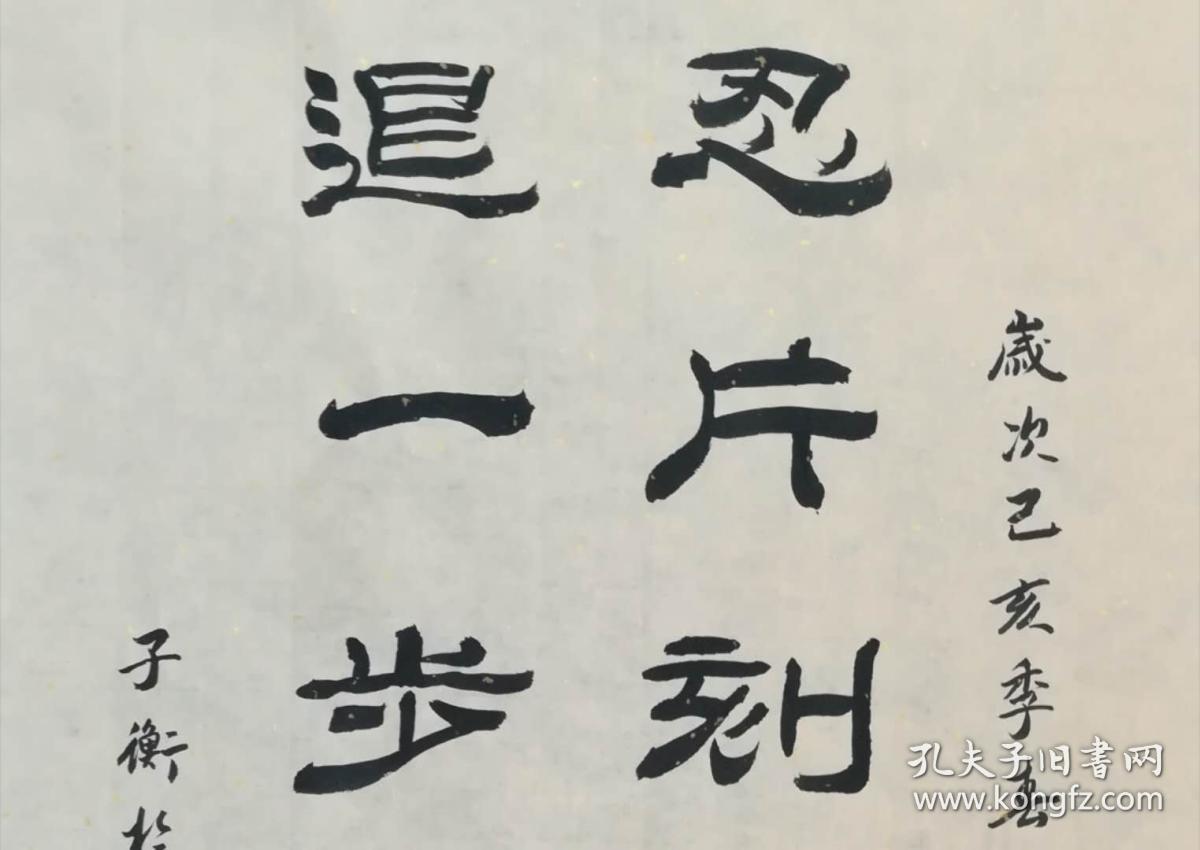 歲次己亥季春
忍片刻
退一步
子衡於
孔夫子旧书网
www.kongfz.com